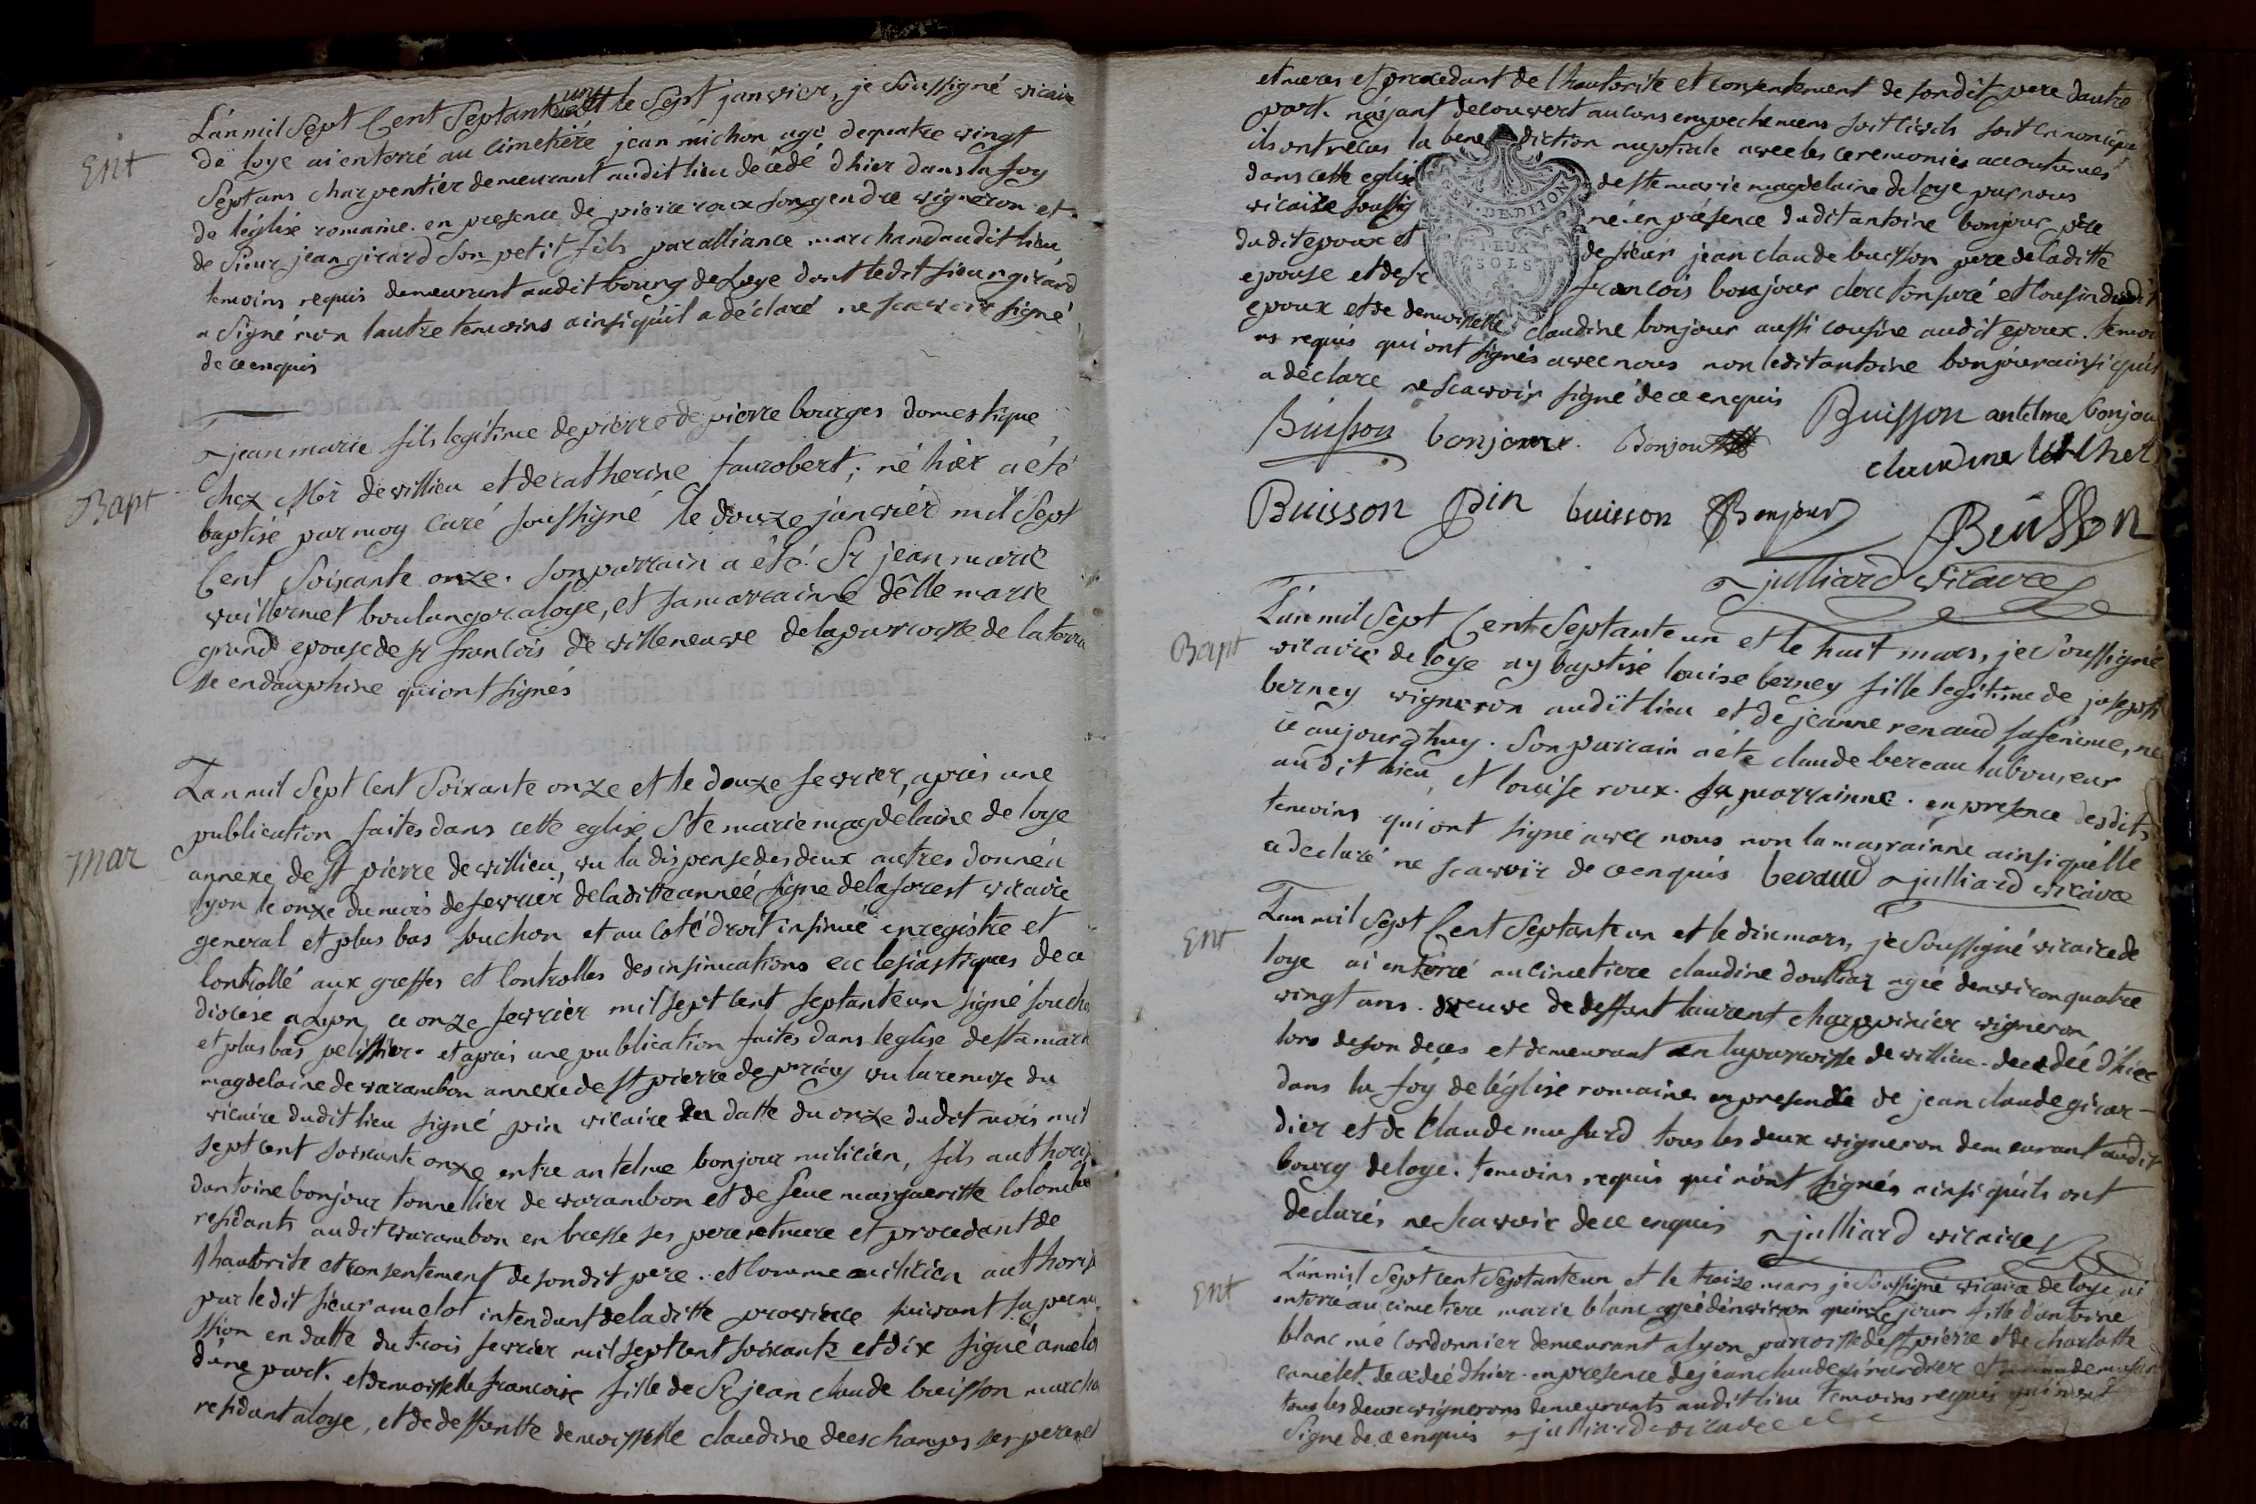 L'an mil Sept Cent Septante un le Sept janvier, je Soussigné vicaire
Ent
de loye ai enterré au cimetière jean michon agé dequatre vingt
Sept ans charpentier demeurant audit lieu décédé d'hier dans la foy
de léglise romaine. en presence de pierre roux son gendre vigneron et.
de Sieur jean girard Son petit fils par alliance marchand audit lieu
temoins requis demeurant audit bourg de Loye dont ledit sieur girard
a Signé non lautre temoins ainsi quil a déclaré ne scavoir signé
de ce enquis
jean marie fils legitime de pierre de pierre bourges domestique
Bapt
chez Mor de villieu et de catherine faurobert; né hier a été
baptisé par moy Curé soussigné le douze janvier mil Sept
Cent Soixante onze. Son parrain a été Sr jean marie
vuillermet boulanger a loye, et sa marrainne délle marie
grand epouse de Sr francois de villeneuve de la paroisse de la
sse en dauphine qui ont signés
L'an mil Sept Cent Soixante onze et le douze fevrier, après une
publication faites dans cette eglise Ste marie magdelaine de loye
mar
annexe de St pierre de villieu, vu la dispense des deux autres donnée a
lyon le onze du mois de fevrier de laditte année, signé delaforest vicaire
general et plus bas souchon et au coté droit insinué enregistré et
Controllé aux greffes et Controlles des insinuations ecclesiastiques de ce
diocése a Lyon ce onze fevrier mil sept cent septante un signé Soucho
et plus bas pelissier. et après une publication faites dans leglise de sta marie
magdelaine de varambon annexe de St pierre de priay vu la remise du
vicaire dudit lieu signé pin vicaire en datte du onze dudit mois mil
sept cent soixante onze entre antelme bonjour milicien, fils authorisé
dantoine bonjour tonnellier de varambon et de feue marguerite
residants audit varambon en bresse ses pere et mere et procedant de
lhautorite et consentement de sondit pere. et Comme milicien authorisé
par ledit sieur amelot intendant de laditte province suivant sa permi
ssion en datte du trois fevrier mil sept cent soixante et dix signé amelot
dune part. et demoiselle francoise fille de Sr jean claude buisson marcha
residant a loye, et de deffuntte demoisselle claudine deschamps ses pere et
et meres et procedant de lhautorité et consentement de sondit pere dautre
part. nayant decouvert aucuns empechemens soit civils soit canonique
ils ont reçus la bene diction nuptiale avec les ceremonies accoutumés
dans cette eglise de Ste marie magdelaine de loye par nous
vicaire soussig né. en présence dudit antoine bonjour pere
GEN. DE DIJON
DEUX
SOLS
dudit epoux et de sieur jean claude buisson pere de laditte
epouse et de sr francois bonjour clerc tonsuré et Cousin dudit
epoux et de demoiselle claudine bonjour aussi cousine audit epoux. temoi
ns requis qui ont signés avec nous non ledit antoine bonjour ainsi quil
a déclaré ne scavoir signé de ce enquis
Buisson antelme bonjour
Buisson bonjour. Bonjour
claudine
Buisson Pin buisson Bonjour
Buisson
julliard vicaire
L'an mil Sept Cent Septante un et le huit mars, je Soussigné
Bapt
vicaire de loye ay baptisé louise berney fille legitime de joseph
berney vigneron audit lieu et de jeanne renaud sa femme, né
ce aujourdhuy. Son parrain a été claude bereau laboureur
audit lieu, et louise roux. sa marrainne. en presence desdits
temoins qui ont signé avec nous non la marrainne ainsi quelle
a declaré ne scavoir de ce enquis beraud julliard vicaire
L'an mil Sept Cent Septante un et le dix mars, je Soussigné vicaire de
Ent
loye ai enterré au cimetiere claudine agée denviron quatre
vingt ans. veuve de deffunt laurent charpinier vigneron
lors de son deces et demeurant en la paroisse de villieu. decedée d'hier
dans la foy de léglise romaine en presence de jean claude girar-
dier et de Claude musard tous les deux vigneron demeurant audit
bourg de loye. temoins requis qui n'ont signés ainsi quils ont
declarés ne scavoir de ce enquis julliard vicaire
L'an mil Sept cent Septante un et le treize mars je Soussigné vicaire de loye ai
Ent
enterré au cimetiere marie blanc agée d'environ quinze jour fille d'antoine
blanc cordonnier demeurant a lyon paroisse de St pierre et de charlotte
camelet. decedée d'hier. en presence de jean claude girardier et
tous les deux vignerons demeurants audit lieu temoins requis qui n'ont
Signé de ce enquis julliard vicaire